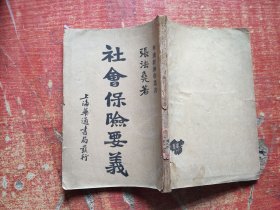 張法堯著
社會保險要義
上海華通書局發行